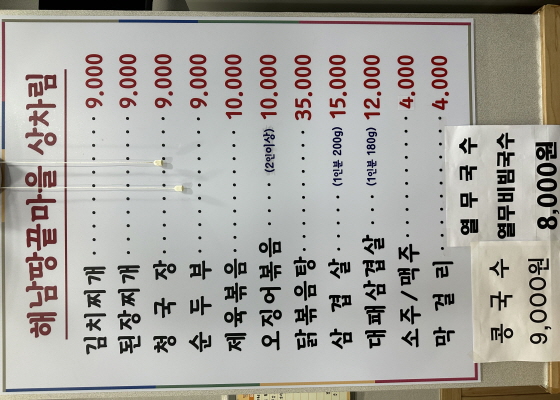 해남땅끝마을 상차림
김치찌개 ........ 9.000
된장찌개 ........ 9.000
청국장 ........ 9.000
순두부 ........ 9.000
제육볶음 ........ 10.000
오징어볶음 ..... (2인이상) 10.000
닭볶음탕 ........ 35.000
삼겹살 ..... (1인분 200g) 15.000
대패삼겹살 .... (1인분 180g) 12.000
소주/맥주 ........ 4.000
막걸리 ........ 4.000
열무국수
열무비빔국수
8,000원
콩국수
9,000원